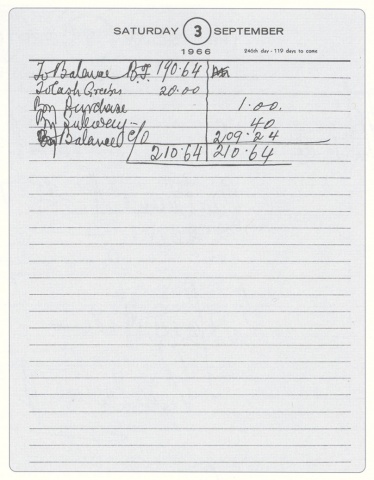 SATURDAY 3 SEPTEMBER
1966 246th day - 119 days to come
To Balance B.F. 190.64
To Cash 20.00
1.00.
40
Balance C/D 209.24
210.64 210.64